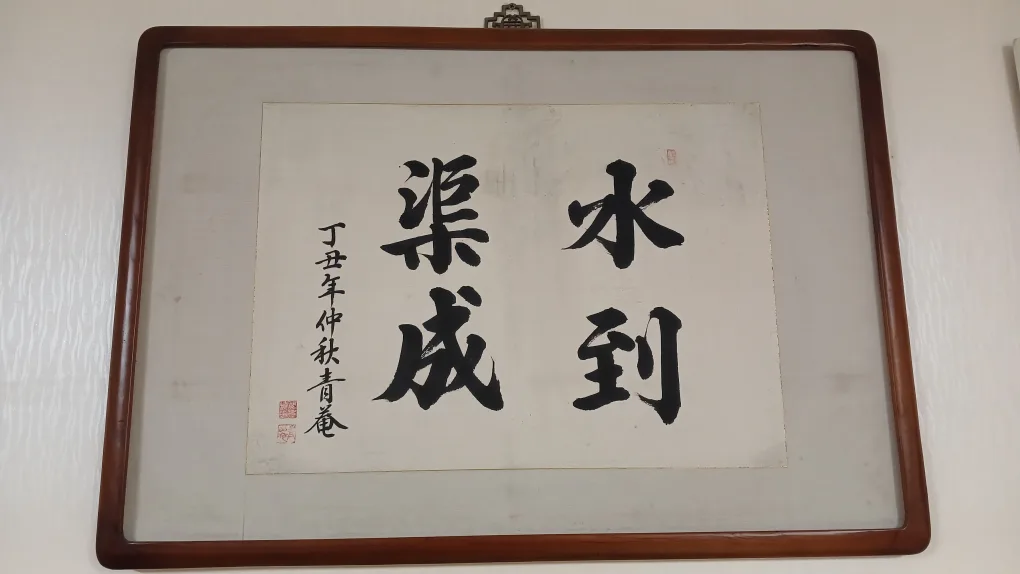 水到
渠成
丁丑年仲秋青菴